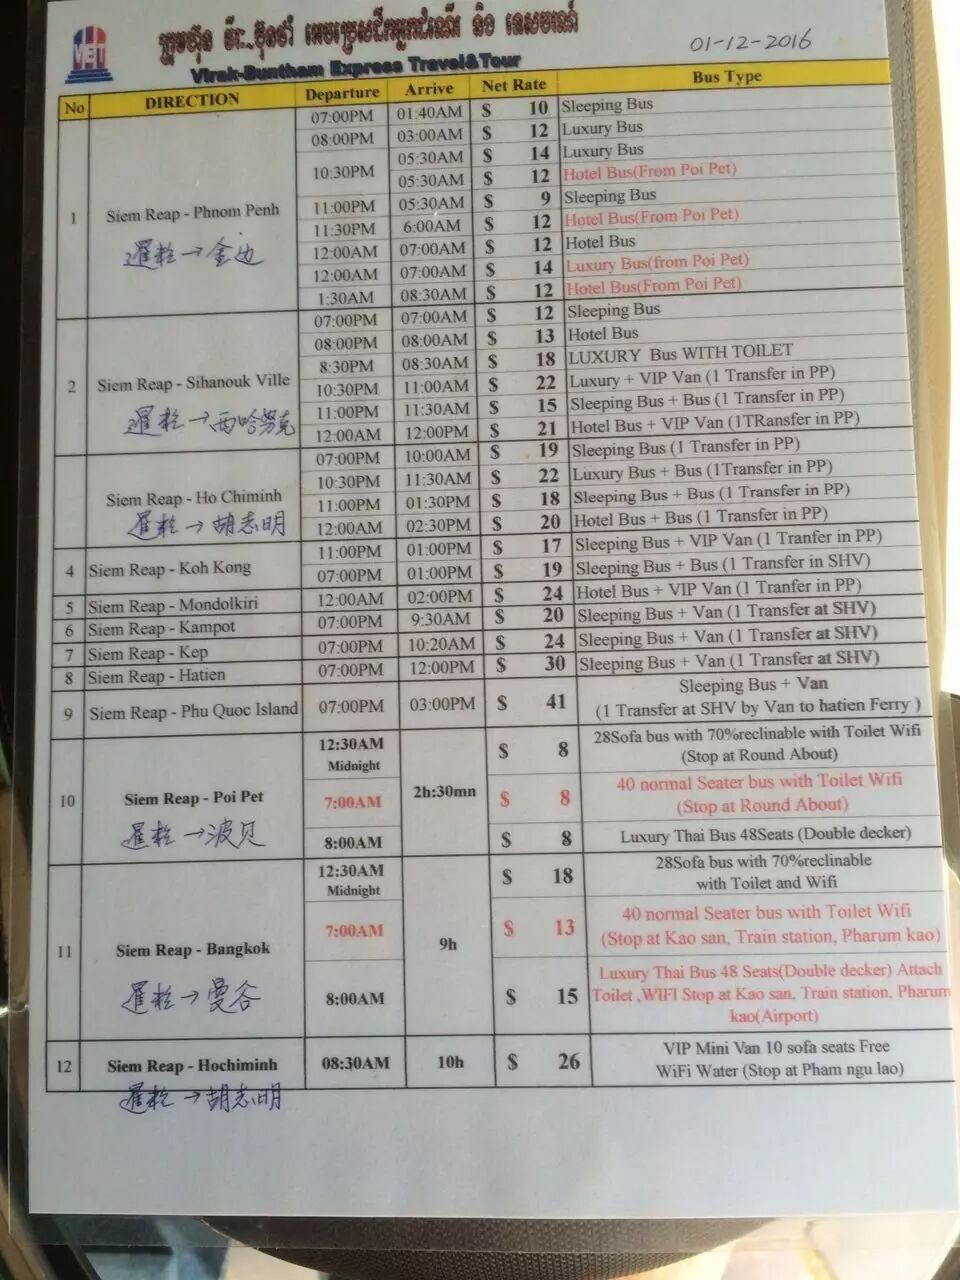 VET
01-12-2016
Virak-Buntham Express Travel&Tour
No DIRECTION Departure Arrive Net Rate Bus Type
1 Siem Reap - Phnom Penh
暹粒→金边
07:00PM 01:40AM $ 10 Sleeping Bus
08:00PM 03:00AM $ 12 Luxury Bus
10:30PM 05:30AM $ 14 Luxury Bus
05:30AM $ 12 Hotel Bus(From Poi Pet)
11:00PM 05:30AM $ 9 Sleeping Bus
11:30PM 6:00AM $ 12 Hotel Bus(From Poi Pet)
12:00AM 07:00AM $ 12 Hotel Bus
12:00AM 07:00AM $ 14 Luxury Bus(from Poi Pet)
1:30AM 08:30AM $ 12 Hotel Bus(From Poi Pet)
2 Siem Reap - Sihanouk Ville
暹粒→西哈努克
07:00PM 07:00AM $ 12 Sleeping Bus
08:00PM 08:00AM $ 13 Hotel Bus
8:30PM 08:30AM $ 18 LUXURY Bus WITH TOILET
10:30PM 11:00AM $ 22 Luxury + VIP Van (1 Transfer in PP)
11:00PM 11:30AM $ 15 Sleeping Bus + Bus (1 Transfer in PP)
12:00AM 12:00PM $ 21 Hotel Bus + VIP Van (1TRansfer in PP)
Siem Reap - Ho Chiminh
暹粒→胡志明
07:00PM 10:00AM $ 19 Sleeping Bus (1 Transfer in PP)
10:30PM 11:30AM $ 22 Luxury Bus + Bus (1Transfer in PP)
11:00PM 01:30PM $ 18 Sleeping Bus + Bus (1 Transfer in PP)
12:00AM 02:30PM $ 20 Hotel Bus + Bus (1 Transfer in PP)
4 Siem Reap - Koh Kong
11:00PM 01:00PM $ 17 Sleeping Bus + VIP Van (1 Tranfer in PP)
07:00PM 01:00PM $ 19 Sleeping Bus + Bus (1 Transfer in SHV)
5 Siem Reap - Mondolkiri 12:00AM 02:00PM $ 24 Hotel Bus + VIP Van (1 Tranfer in PP)
6 Siem Reap - Kampot 07:00PM 9:30AM $ 20 Sleeping Bus + Van (1 Transfer at SHV)
7 Siem Reap - Kep 07:00PM 10:20AM $ 24 Sleeping Bus + Van (1 Transfer at SHV)
8 Siem Reap - Hatien 07:00PM 12:00PM $ 30 Sleeping Bus + Van (1 Transfer at SHV)
9 Siem Reap - Phu Quoc Island 07:00PM 03:00PM $ 41 Sleeping Bus + Van
(1 Transfer at SHV by Van to hatien Ferry )
10 Siem Reap - Poi Pet
暹粒→波贝
2h:30mn
12:30AM $ 8 28Sofa bus with 70%reclinable with Toilet Wifi
Midnight (Stop at Round About)
7:00AM $ 8 40 normal Seater bus with Toilet Wifi
(Stop at Round About)
8:00AM $ 8 Luxury Thai Bus 48Seats (Double decker)
11 Siem Reap - Bangkok
暹粒→曼谷
9h
12:30AM $ 18 28Sofa bus with 70%reclinable
Midnight with Toilet and Wifi
7:00AM $ 13 40 normal Seater bus with Toilet Wifi
(Stop at Kao san, Train station, Pharum kao)
8:00AM $ 15 Luxury Thai Bus 48 Seats(Double decker) Attach
Toilet ,WIFI Stop at Kao san, Train station, Pharum
kao(Airport)
12 Siem Reap - Hochiminh 08:30AM 10h $ 26 VIP Mini Van 10 sofa seats Free
WiFi Water (Stop at Pham ngu lao)
暹粒→胡志明